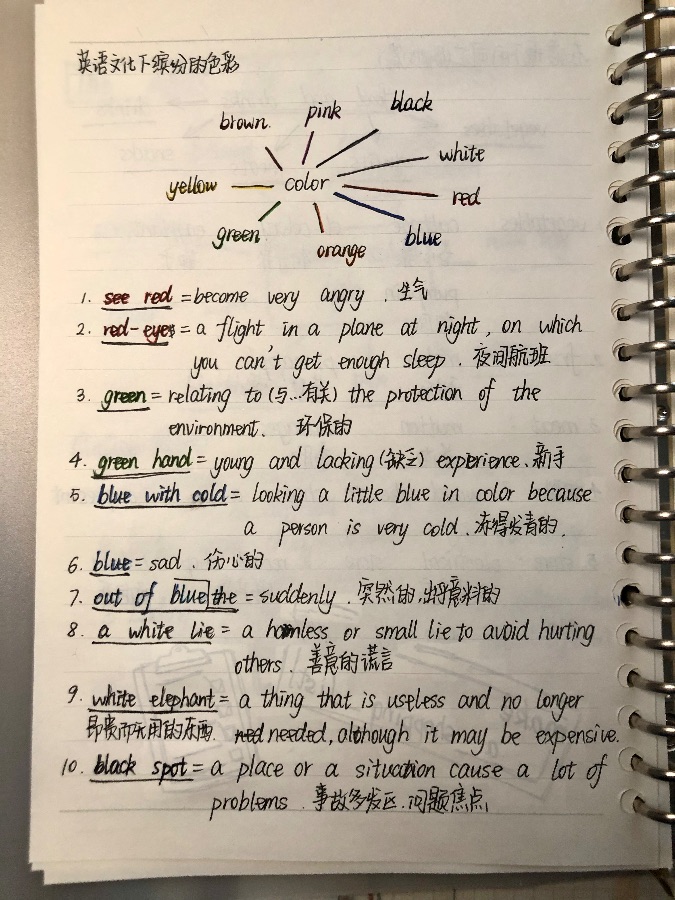 英语文化下缤纷的色彩
brown pink black
white
yellow color red
green orange blue
1. see red = become very angry . 生气
2. red-eyes = a flight in a plane at night, on which
you can't get enough sleep . 夜间航班
3. green = relating to (与...有关) the protection of the
environment. 环保的
4. green hand = young and lacking (缺乏) experience. 新手
5. blue with cold = looking a little blue in color because
a person is very cold . 冻得发青的.
6. blue = sad . 伤心的
7. out of blue the = suddenly . 突然的,出乎意料的
8. a white lie = a harmless or small lie to avoid hurting
others . 善意的谎言
9. white elephant = a thing that is useless and no longer
昂贵而无用的东西. ned needed, although it may be expensive.
10. black spot = a place or a situation cause a lot of
problems . 事故多发区.问题焦点